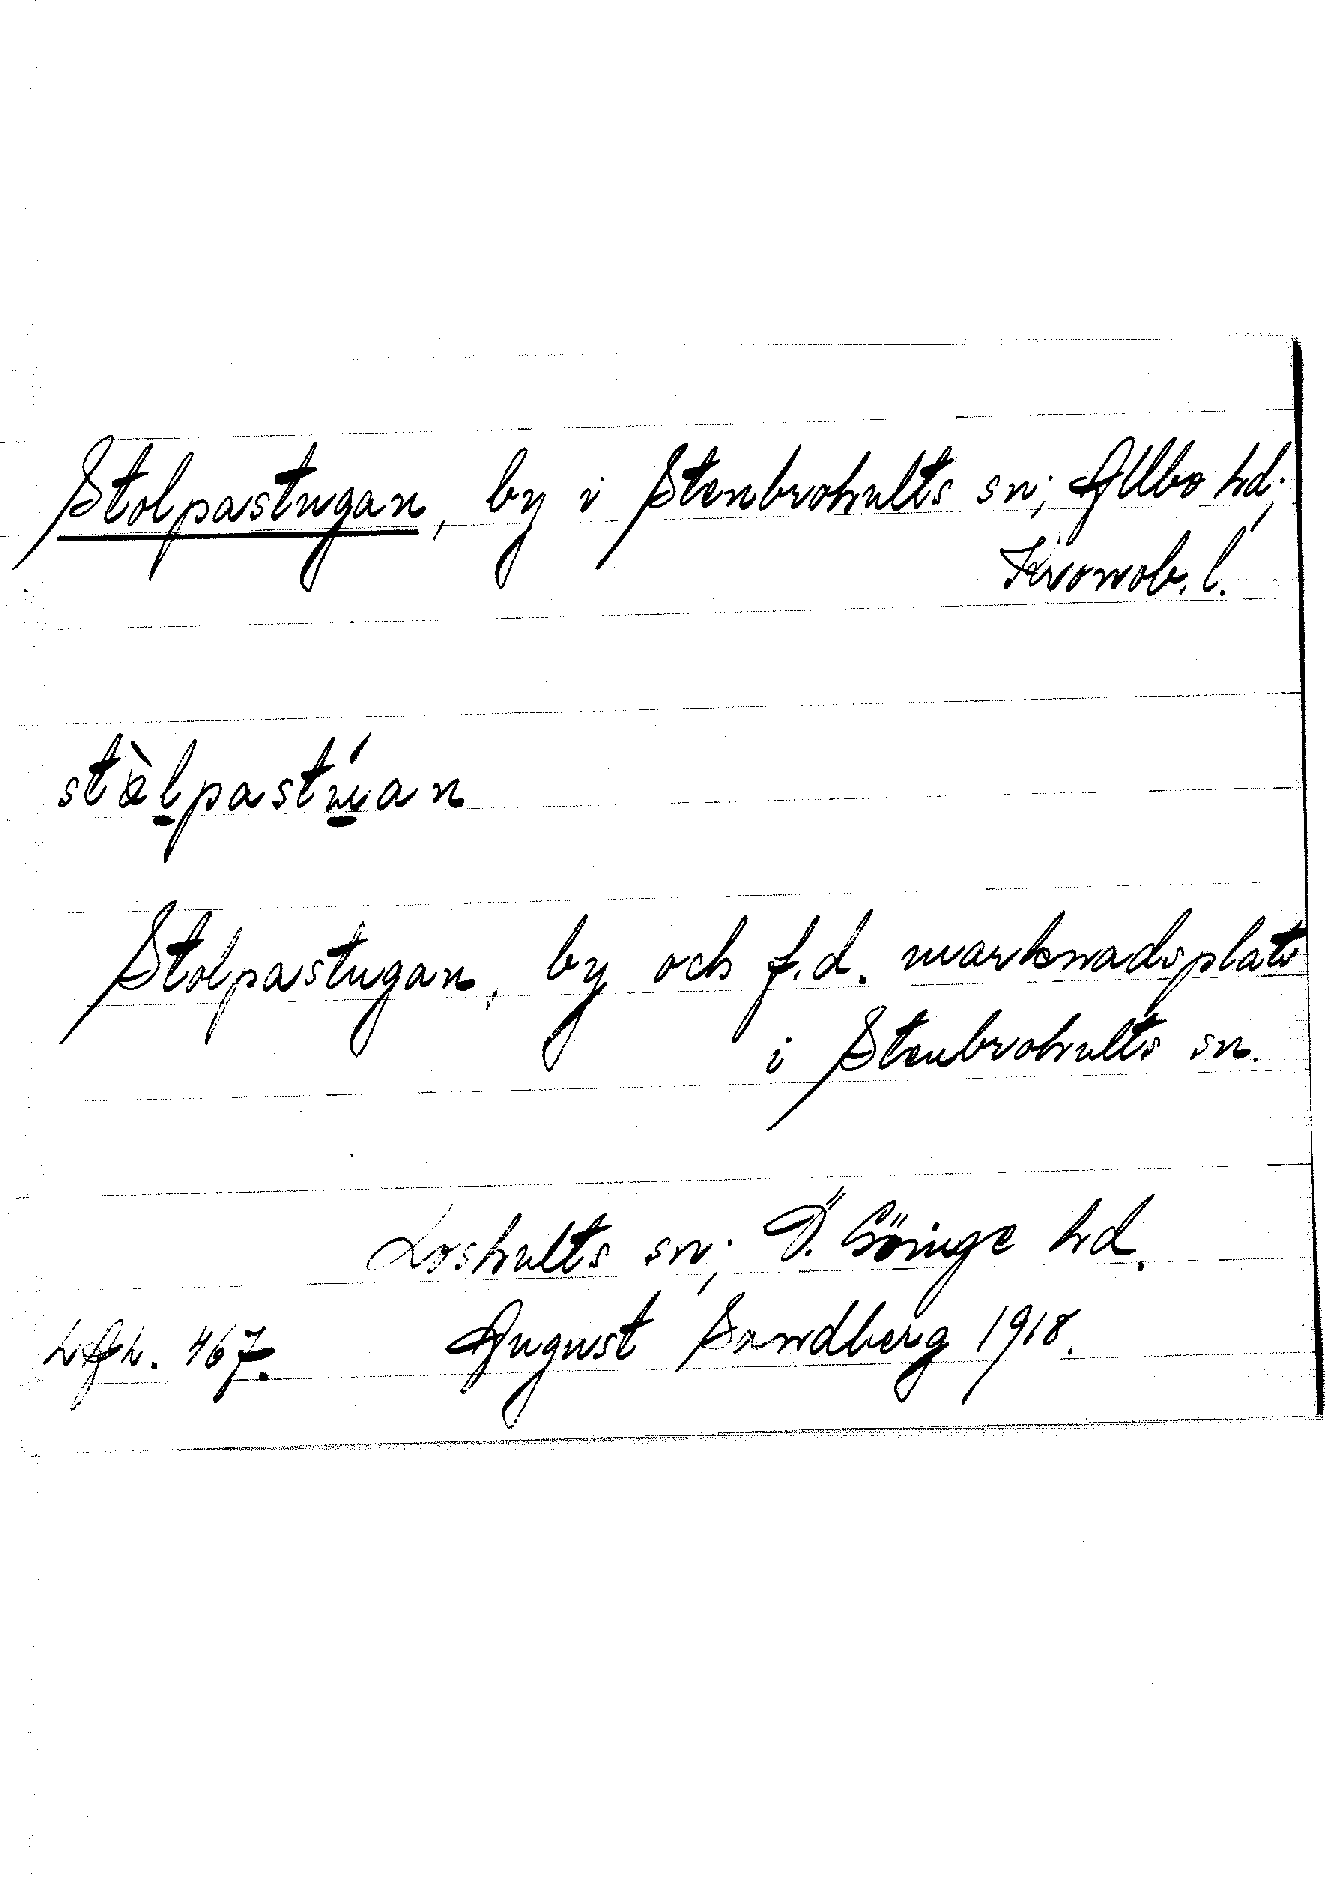 Stolpastugan, by i Stenbrohults sn; Allbo hd;
Kronob. l.
stàlpastúan
Stolpastugan, by och f.d. marknadsplats
i Stenbrohults sn.
Loshults sn; Ö. Göinge hd.
467. August Sandberg 1918.